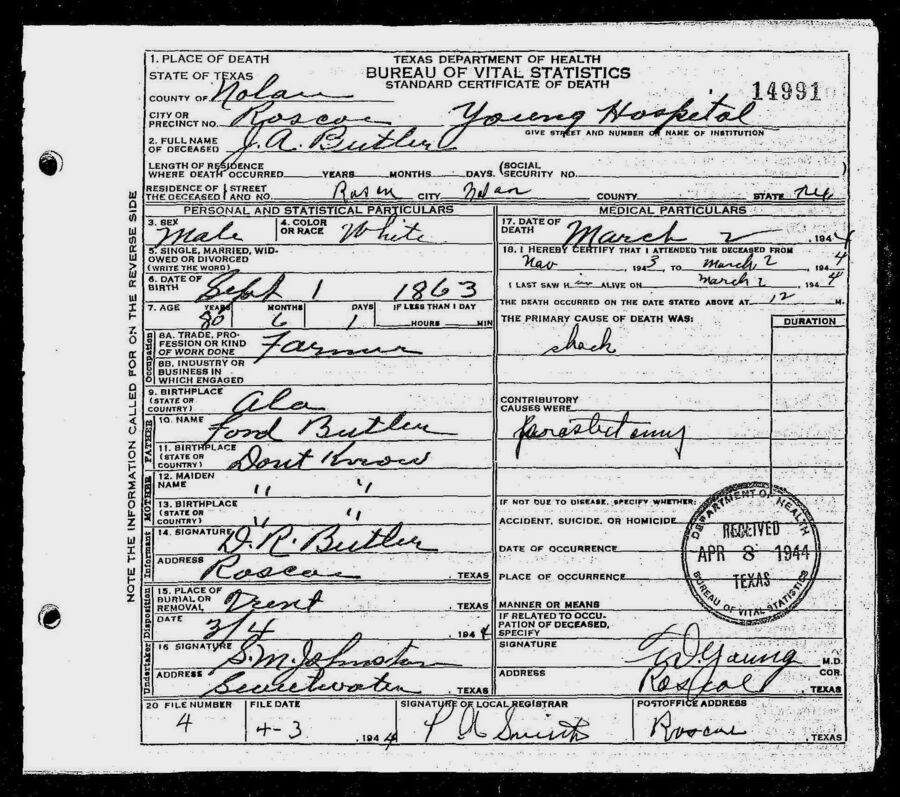 1. PLACE OF DEATH
STATE OF TEXAS
COUNTY OF Nolan
TEXAS DEPARTMENT OF HEALTH
BUREAU OF VITAL STATISTICS
STANDARD CERTIFICATE OF DEATH
14991
CITY OR PRECINCT NO. Roscoe Young Hospital
GIVE STREET AND NUMBER OR NAME OF INSTITUTION
2. FULL NAME OF DECEASED J. A. Butler
LENGTH OF RESIDENCE WHERE DEATH OCCURRED YEARS MONTHS DAYS. (SOCIAL SECURITY NO.
RESIDENCE OF THE DECEASED STREET AND NO. CITY Nolan COUNTY STATE Tex
PERSONAL AND STATISTICAL PARTICULARS
3. SEX Male
4. COLOR OR RACE White
5. SINGLE, MARRIED, WIDOWED OR DIVORCED (WRITE THE WORD)
6. DATE OF BIRTH Sept 1 1863
7. AGE YEARS 80 MONTHS 6 DAYS 1 IF LESS THAN 1 DAY HOURS MIN
Occupation
8A. TRADE, PROFESSION OR KIND OF WORK DONE Farmer
8B. INDUSTRY OR BUSINESS IN WHICH ENGAGED
9. BIRTHPLACE (STATE OR COUNTRY) Ala
FATHER
10. NAME Ford Butler
11. BIRTHPLACE (STATE OR COUNTRY) Dont Know
MOTHER
12. MAIDEN NAME " "
13. BIRTHPLACE (STATE OR COUNTRY) " "
Informant
14. SIGNATURE D. R. Butler
ADDRESS Roscoe, TEXAS
Disposition
15. PLACE OF BURIAL OR REMOVAL, Trent, TEXAS
DATE 3/4, 1944
Undertaker
16 SIGNATURE S. M. Johnston
ADDRESS Sweetwater, TEXAS
MEDICAL PARTICULARS
17. DATE OF DEATH March 2, 1944
18. I HEREBY CERTIFY THAT I ATTENDED THE DECEASED FROM
Nov 1943, TO March 2 1944
I LAST SAW H im ALIVE ON March 2 1944
THE DEATH OCCURRED ON THE DATE STATED ABOVE AT 12 M.
THE PRIMARY CAUSE OF DEATH WAS:
DURATION
shock
CONTRIBUTORY CAUSES WERE
IF NOT DUE TO DISEASE, SPECIFY WHETHER:
ACCIDENT, SUICIDE, OR HOMICIDE
DATE OF OCCURRENCE
PLACE OF OCCURRENCE
MANNER OR MEANS
IF RELATED TO OCCUPATION OF DECEASED, SPECIFY
DEPARTMENT OF HEALTH
RECEIVED
APR 8 1944
TEXAS
BUREAU OF VITAL STATISTICS
SIGNATURE Young M.D.
COR.
ADDRESS Roscoe, TEXAS
20 FILE NUMBER 4
FILE DATE 4-3, 1944
SIGNATURE OF LOCAL REGISTRAR P A Smith
POSTOFFICE ADDRESS Roscoe, TEXAS
NOTE THE INFORMATION CALLED FOR ON THE REVERSE SIDE